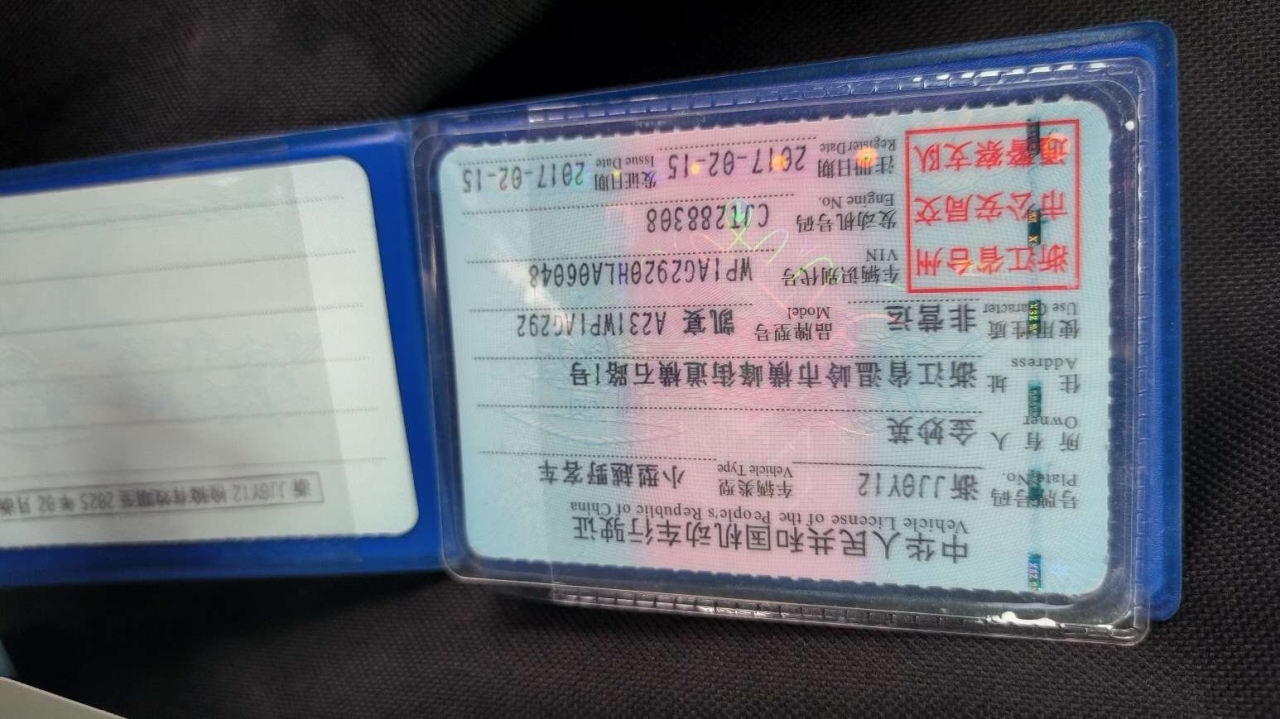 中华人民共和国机动车行驶证
Vehicle License of the People's Republic of China
号牌号码 浙JJ0Y12 车辆类型 小型越野客车
Plate No. Vehicle Type
所有人 金妙英
Owner
住址 浙江省温岭市横峰街道横石路1号
Address
使用性质 非营运 品牌型号 凯宴 A231WP1AG292
Use Character Model
浙江省台州
市公安局交
通警察支队
车辆识别代号 WP1AG2920HLA06048
VIN
发动机号码 CJT288308
Engine No.
注册日期 2017-02-15 发证日期 2017-02-15
Register Date Issue Date
浙JJ0Y12 检验有效期至 2025年02月